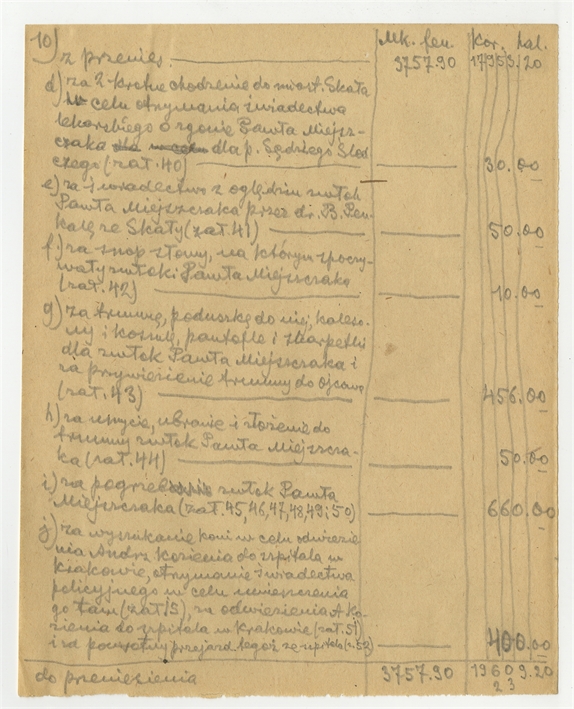 10) Mk. fen. Kor. hal.
z przenies. 3757.90 17953.20
d) za 2-krotne chodzenie do miast. Skała
w celu otrzymania świadectwa
lekarskiego o zgonie Pawła Miejsz-
czaka dla p. Sędziego Śled
czego (zał. 40) 30.00
e) za świadectwo z oględzin zwłok
Pawła Miejszczaka przez dr. B. Pen
kalę ze Skały (zał. 41) 50.00
f) za snop słomy, na którym spoczy-
wały zwłoki Pawła Miejszczaka
(zał. 42) 10.00
g) za trumnę, poduszkę do niej, kaleso-
ny i koszulę, pantofle i skarpetki
dla zwłok Pawła Miejszczaka i
za przywiezienie trumny do Ojcowa
(zał. 43) 456.00
h) za umycie, ubranie i złożenie do
trumny zwłok Pawła Miejszcza-
ka (zał. 44) 50.00
i) za pogrzeb zwłok Pawła
Miejszczaka (zał. 45, 46, 47, 48, 49 i 50) 660.00
j) za wyszukanie koni w celu odwiezie
nia Andrz Kozienia do szpitala w
Krakowie, otrzymanie świadectwa
policyjnego w celu umieszczenia
go tam (zał 15), za odwiezienia A Ko-
zienia do szpitala w Krakowie (zał. 51)
i za powrotny przejazd tegoż ze szpitala (z. 52) 400.00
do przeniesienia 3757.90 19609.20
23